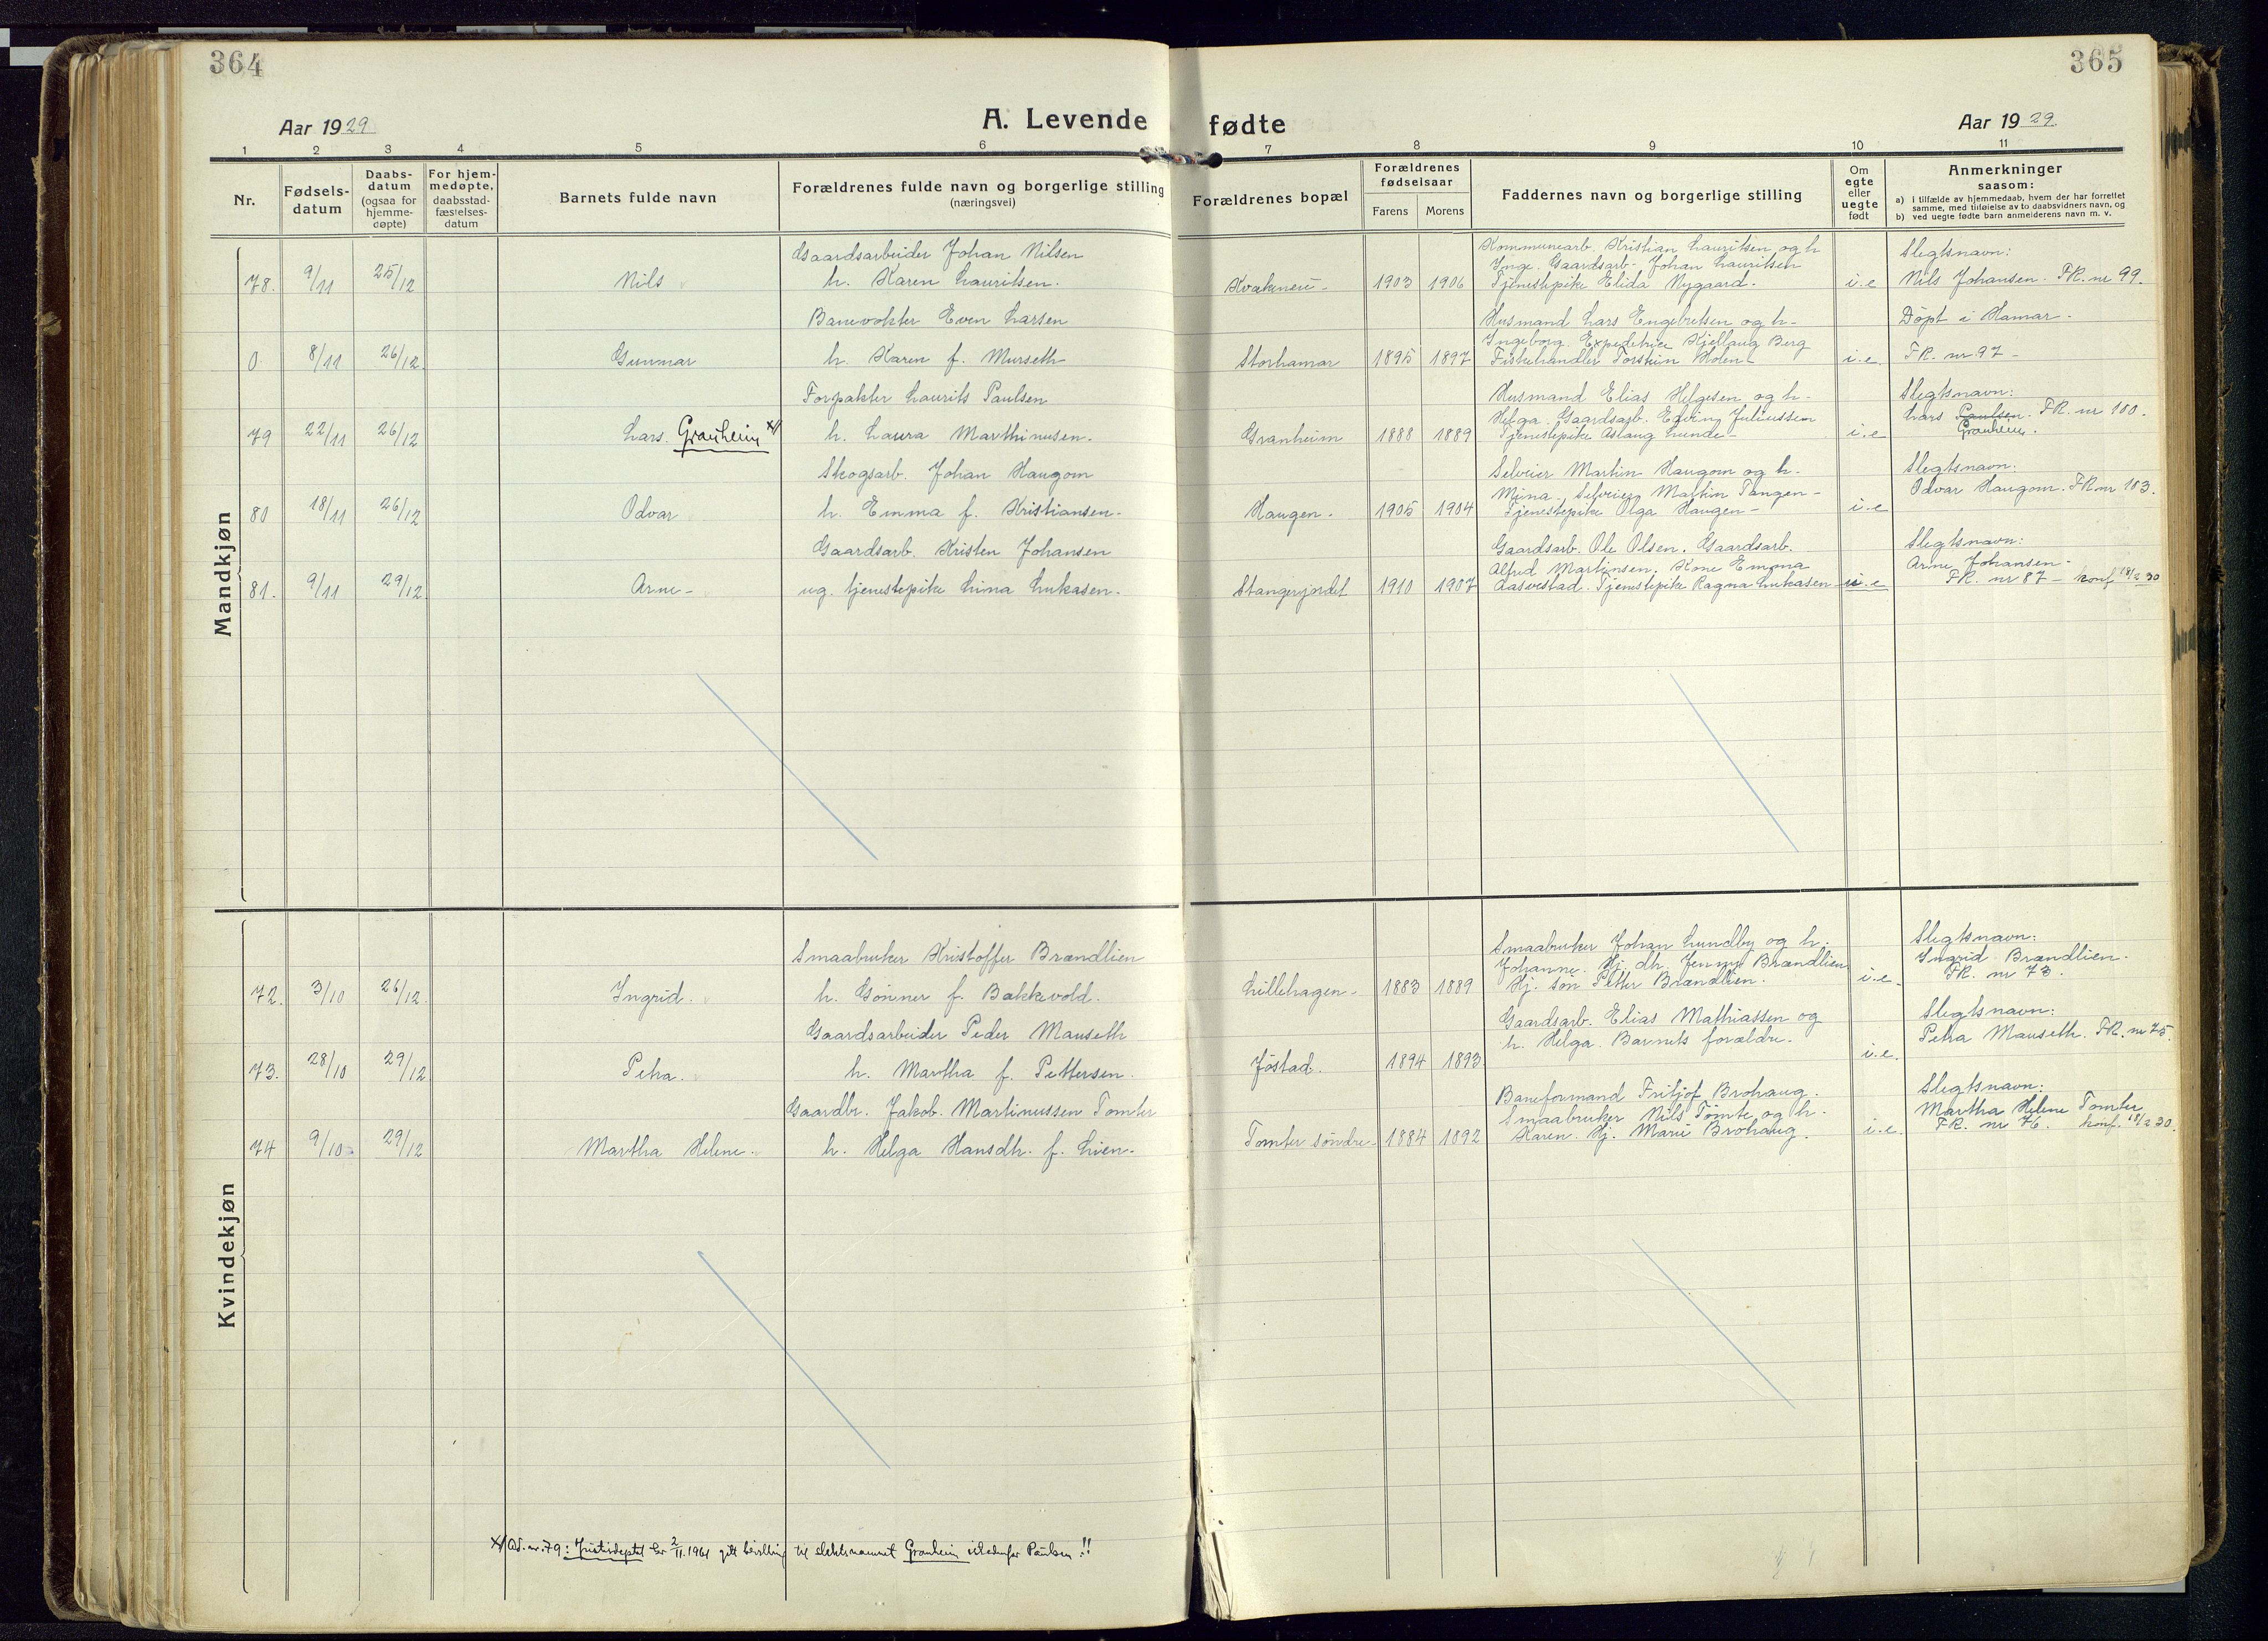 364
365
Aar 1929
A. Levende fødte
Aar 1929
1 2 3 4 5 6 7 8 9 10 11
Nr.
Fødsels-
datum
Daabs-
datum
(ogsaa for
hjemme-
døpte)
For hjem-
medøpte,
daabsstad-
fæstelses-
datum
Barnets fulde navn
Forældrenes fulde navn og borgerlige stilling
(næringsvei)
Forældrenes bopæl
Forældrenes
fødselsaar
Farens Morens
Faddernes navn og borgerlige stilling
Om
egte
eller
uegte
født
Anmerkninger
saasom:
a) i tilfælde av hjemmedaab, hvem der har forrettet
samme, med tilføielse av to daabsvidners navn, og
b) ved uegte fødte barn anmelderens navn m. v.
Mandkjøn
Gaardsarbeider Johan Nilsen
Kommunearb. Kristian Lauritsen og h
Inge. Gaardsarb. Johan Lauritsen
Slegtsnavn:
78. 9/11 25/12 Nils h. Karen Lauritsen. 1903 1906 Tjenestepike Elida Nygaard. i.e Nils Johansen. FR. nr 99.
Banevokter Even Larsen
Husmand Lars Engebretsen og h-
Døpt i Hamar.
Ingeborg. Expeditrice Kjellaug Berg
0 8/11 26/12 Gunnar h. Karen f. Murseth Storhamar 1895 1897 Fiskehandler Torstein Holen i.e. FR. nr 97-
Forpakter Laurits Paulsen
Husmand Elias Helgesen og h-
Slegtsnavn:
Helga. Gaardsarb. Edvin Juliussen
Lars Paulsen. FR. nr 100.
79 22/11 26/12 Lars. Granheim x) h. Laura Marthinusen. Granheim 1888 1889 Tjenestepike Aslaug Lunde- i.e Granheim.
Skogsarb. Johan Haugom
Selveier Martin Haugom og h-
Slegtsnavn:
Mina-, Selveier Martin Tangen-
Odvar Haugom. FR nr 103.
80 18/11 26/12 Odvar h. Emma f. Kristiansen. Haugen. 1905 1904 Tjenestepike Olga Haugen- i.e
Gaardsarb. Kristen Johansen
Gaardsarb. Ole Olsen. Gaardsarb.
Slegtsnavn:
Alfred Martinsen. Kone Emma
Arne Johansen-
81. 9/11 29/12 Arne- ug. tjenestepike Lina Lukasen. Stangerjordet 1910 1907 Aasvestad. Tjenestepike Ragna Lukasen u.e FR. nr 87- konf 18/2 30
Kvindekjøn
Smaabruker Kristoffer Brændlien
Smaabruker Johan Lundby og h.
Slegtsnavn:
Johanne. Hj. dh. Jenny Brændlien
Ingrid Brændlien.
72. 3/10 26/12 Ingrid. h. Gunner f. Bakkevold. Lillehagen- 1883 1889 Hj. søn Petter Brændlien. i.e. FR. nr 73.
Gaardsarbeider Peder Mauseth
Gaardsarb. Elias Mathiassen og
Slegtsnavn:
h. Helga. Barnets forældre.
Petra Mauseth. FR. nr 75.
73. 28/10 29/12 Petra. h. Martha f. Pettersen. Jøstad. 1894 1893 i.e.
Gaardbr. Jakob Martinussen Tomter
Baneformand Fritjof Brohaug.
Slegtsnavn:
Smaabruker Nils Tomte og h.
Martha Helene Tomter
74 9/10 29/12 Martha Helene. h. Helga Hansdh. f. Lien. Tomter søndre 1884 1892 Karen. Hj. Marie Brohaug. i.e. FR. nr 76. konf. 18/2 30.
x) Ad. nr. 79: Justisdeptet har 2/11. 1961 gitt bevilling til slektsnavnet Granheim istedenfor Paulsen!!